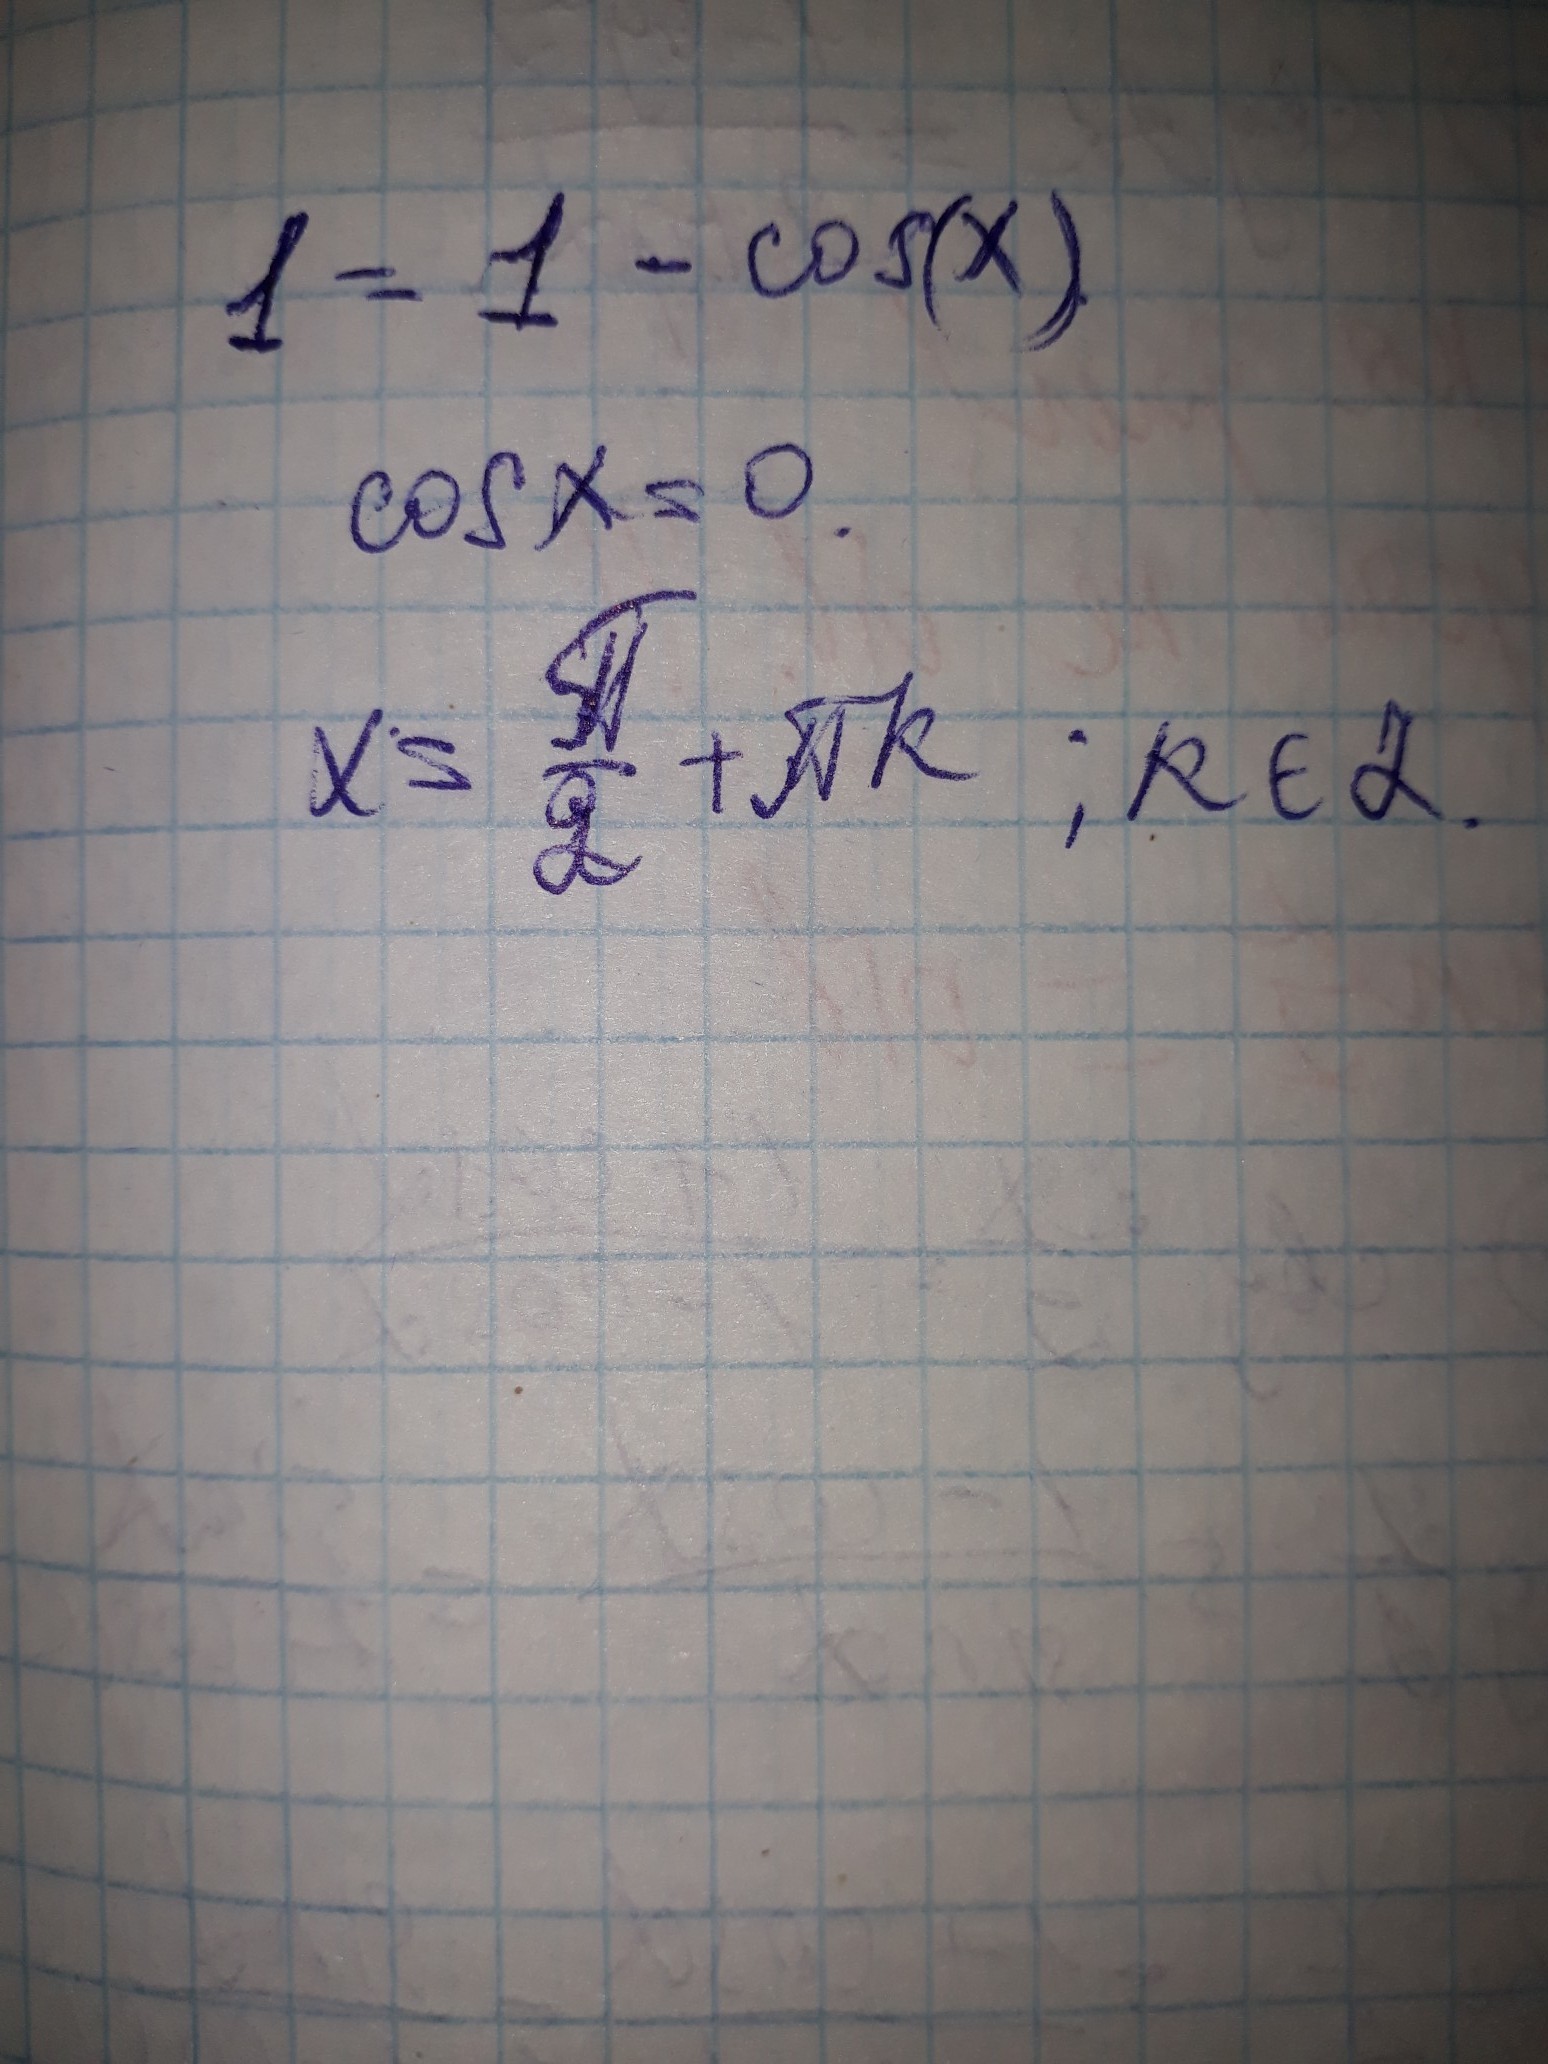 1 = 1 - cos(x)
cos x = 0.
x = π/2 + πk ; k ∈ Z.